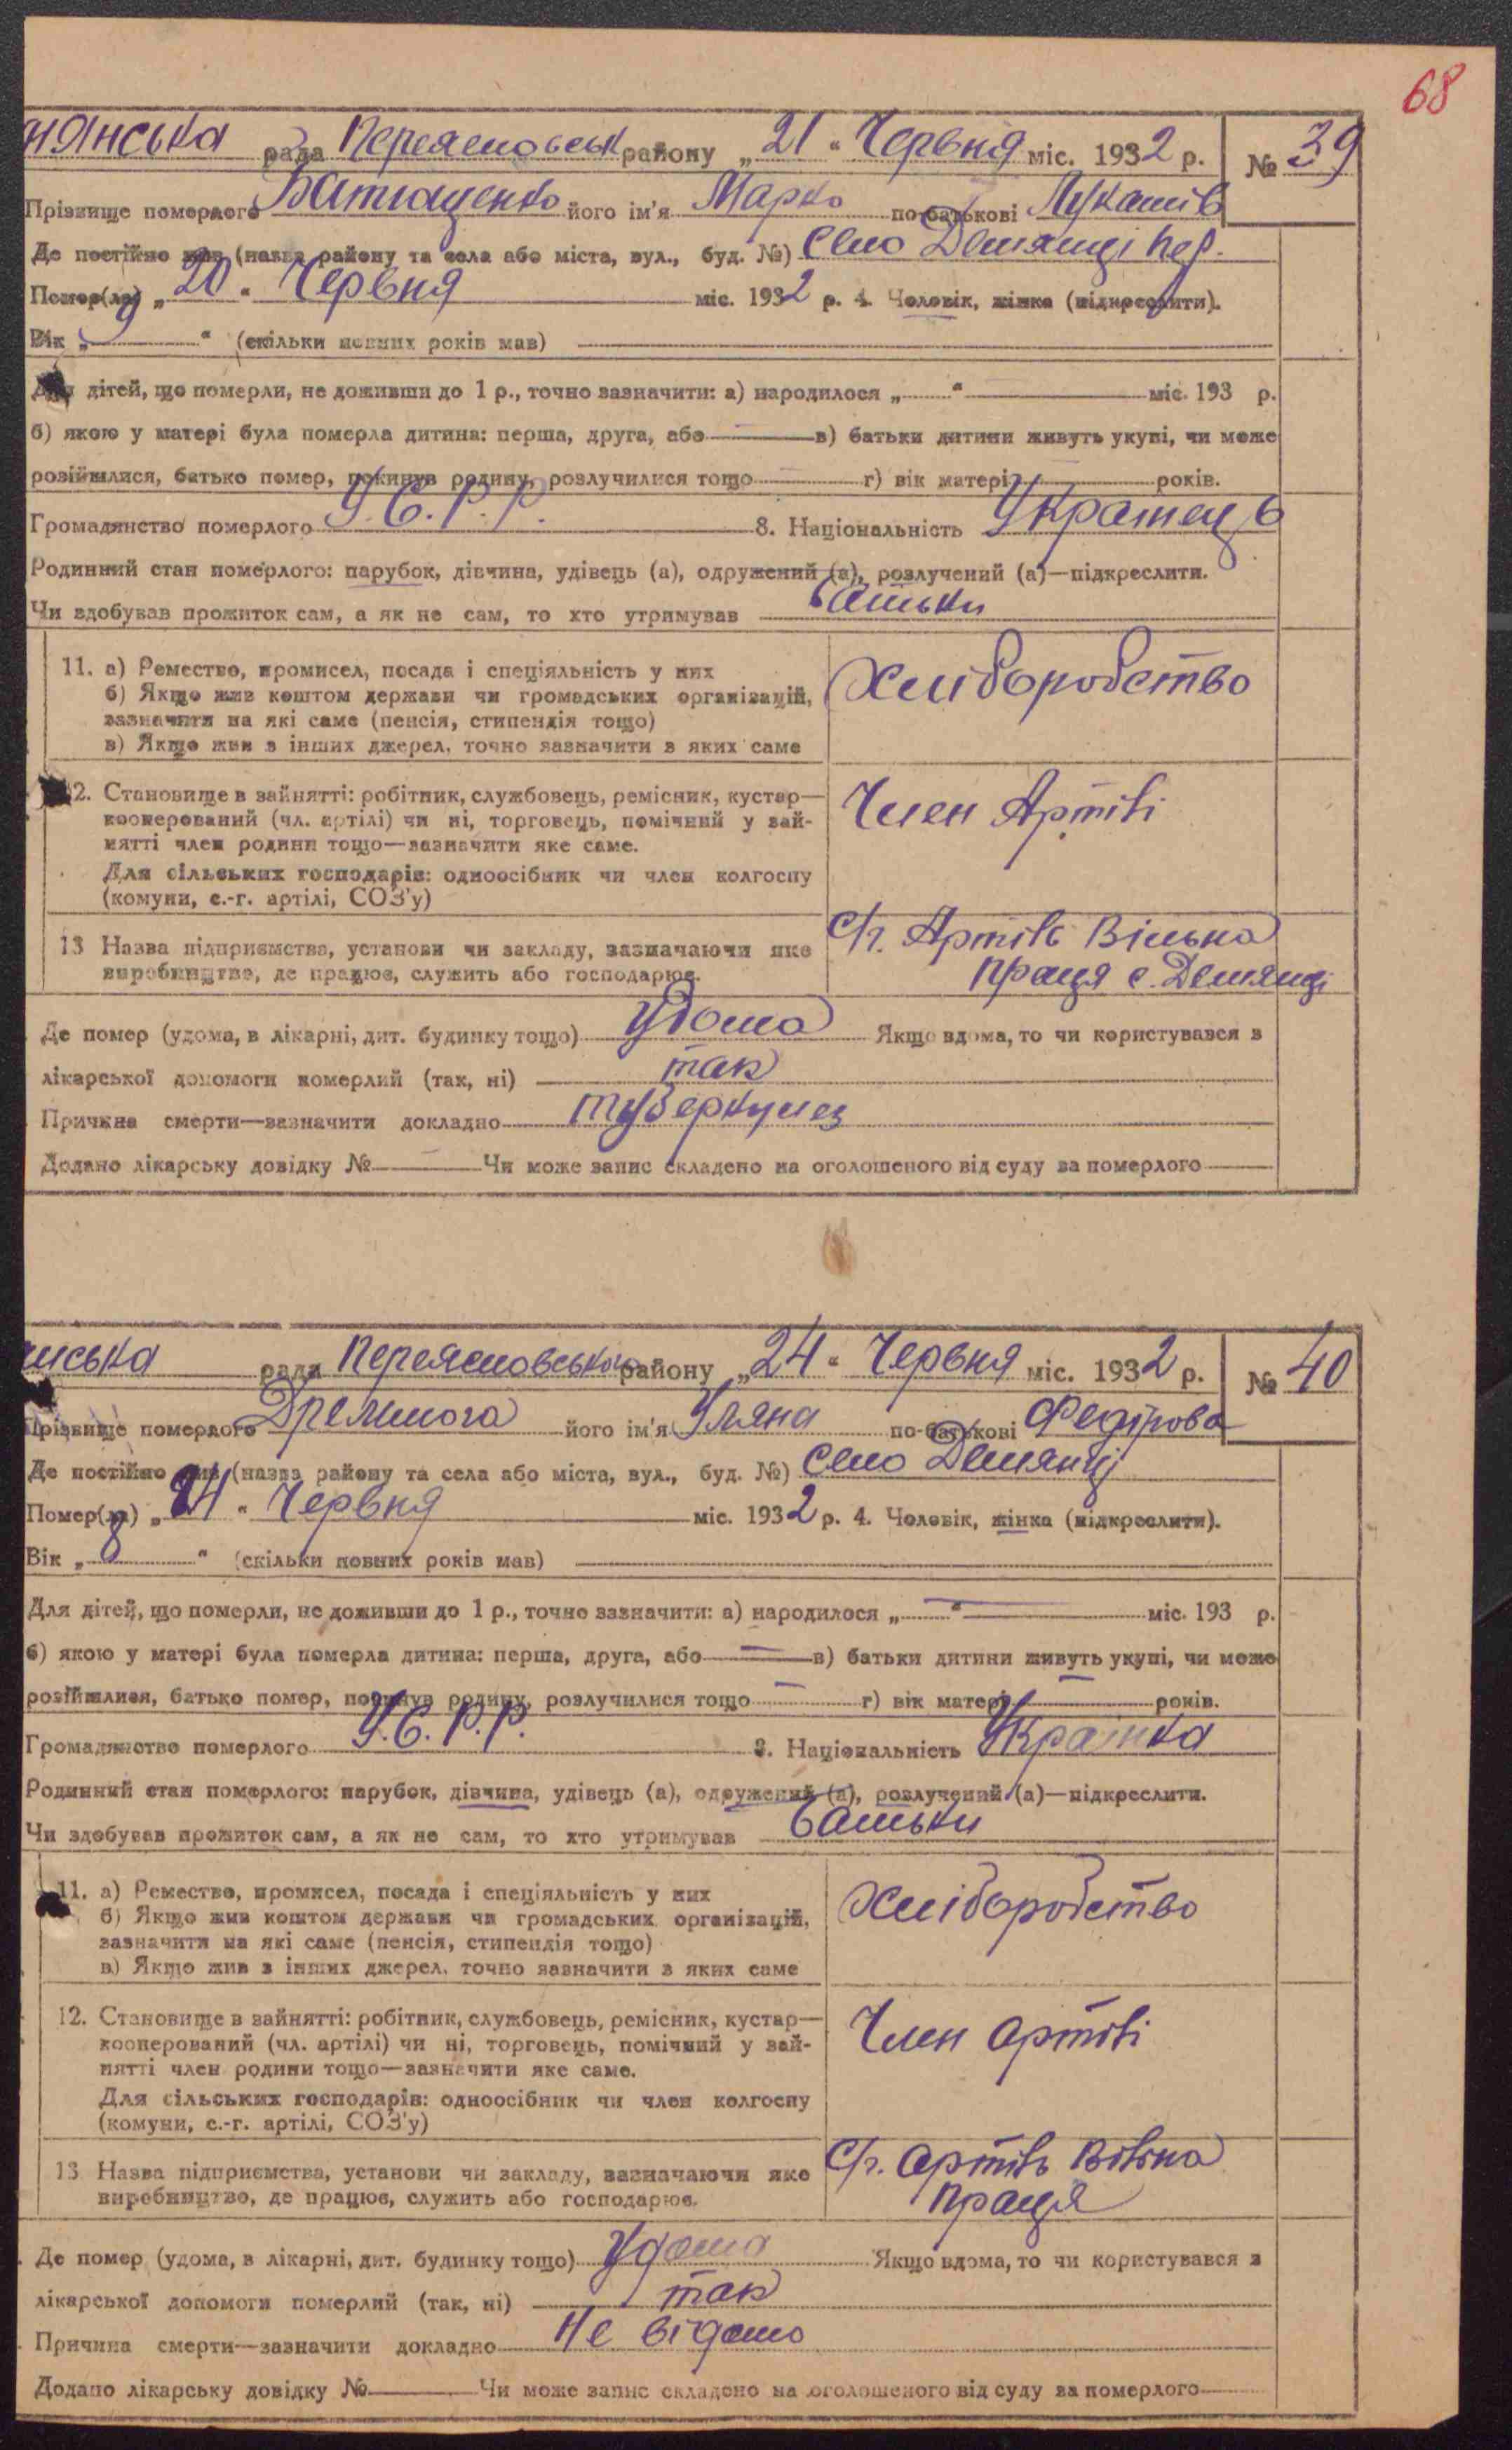 68
нянська рада Переяславськ району „21“ Червня міс. 1932 р. № 39
Прізвище померлого його ім'я Марко по-батькові Лукашів
Де постійно жив (назва району та села або міста, вул., буд. №) Село Демянці Пер.
Помер(ла) „20“ Червня міс. 1932 р. 4. Чоловік, жінка (підкреслити).
Вік „9“ (скільки повних років мав)
Для дітей, що померли, не доживши до 1 р., точно зазначити: а) народилося „ “ міс. 193 р.
б) якою у матері була померла дитина: перша, друга, або — в) батьки дитини живуть укупі, чи може
розійшлися, батько помер, покинув родину, розлучилися тощо — г) вік матері — років.
Громадянство померлого У.С.Р.Р. 8. Національність Украінець
Родинний стан померлого: парубок, дівчина, удівець (а), одружений (а), розлучений (а)—підкреслити.
Чи здобував прожиток сам, а як не сам, то хто утримував батьки
11. а) Ремество, промисел, посада і спеціяльність у них Хліборобство
б) Якщо жив коштом держави чи громадських організацій,
зазначити на які саме (пенсія, стипендія тощо)
в) Якщо жив з інших джерел, точно зазначити з яких саме
12. Становище в зайнятті: робітник, службовець, ремісник, кустар— Член Артілі
кооперований (чл. артілі) чи ні, торговець, помічний у зай-
нятті член родини тощо—зазначити яке саме.
Для сільських господарів: одноосібник чи член колгоспу
(комуни, с.-г. артілі, СОЗ'у)
13 Назва підприємства, установи чи закладу, зазначаючи яке С/г. Артіль Вільна
виробництво, де працює, служить або господарює. праця с. Демянці
Де помер (удома, в лікарні, дит. будинку тощо) Удома Якщо вдома, то чи користувався з
лікарської допомоги померлий (так, ні) так
Причина смерти—зазначити докладно туберкульоз
Додано лікарську довідку № — Чи може запис складено на оголошеного від суду за померлого
нська рада Переяславського району „24“ Червня міс. 1932 р. № 40
Прізвище померлого Дремлюга його ім'я Уляна по-батькові Федірова
Де постійно жив (назва району та села або міста, вул., буд. №) Село Демянці
Помер(ла) „24“ Червня міс. 1932 р. 4. Чоловік, жінка (підкреслити).
Вік „8“ (скільки повних років мав)
Для дітей, що померли, не доживши до 1 р., точно зазначити: а) народилося „ “ міс. 193 р.
б) якою у матері була померла дитина: перша, друга, або — в) батьки дитини живуть укупі, чи може
розійшлися, батько помер, покинув родину, розлучилися тощо — г) вік матері — років.
Громадянство померлого У.С.Р.Р. 8. Національність Украінка
Родинний стан померлого: парубок, дівчина, удівець (а), одружений (а), розлучений (а)—підкреслити.
Чи здобував прожиток сам, а як не сам, то хто утримував батьки
11. а) Ремество, промисел, посада і спеціяльність у них Хліборобство
б) Якщо жив коштом держави чи громадських організацій,
зазначити на які саме (пенсія, стипендія тощо)
в) Якщо жив з інших джерел, точно зазначити з яких саме
12. Становище в зайнятті: робітник, службовець, ремісник, кустар— Член артілі
кооперований (чл. артілі) чи ні, торговець, помічний у зай-
нятті член родини тощо—зазначити яке саме.
Для сільських господарів: одноосібник чи член колгоспу
(комуни, с.-г. артілі, СОЗ'у)
13 Назва підприємства, установи чи закладу, зазначаючи яке С/г. артіль Вільна
виробництво, де працює, служить або господарює. праця
Де помер (удома, в лікарні, дит. будинку тощо) Удома Якщо вдома, то чи користувався з
лікарської допомоги померлий (так, ні) так
Причина смерти—зазначити докладно Не відомо
Додано лікарську довідку № — Чи може запис складено на оголошеного від суду за померлого